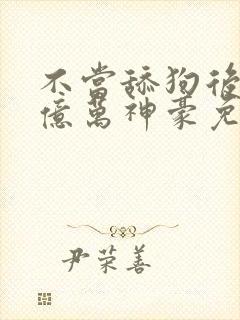 不當舔狗後
億萬神豪免
尹荣善